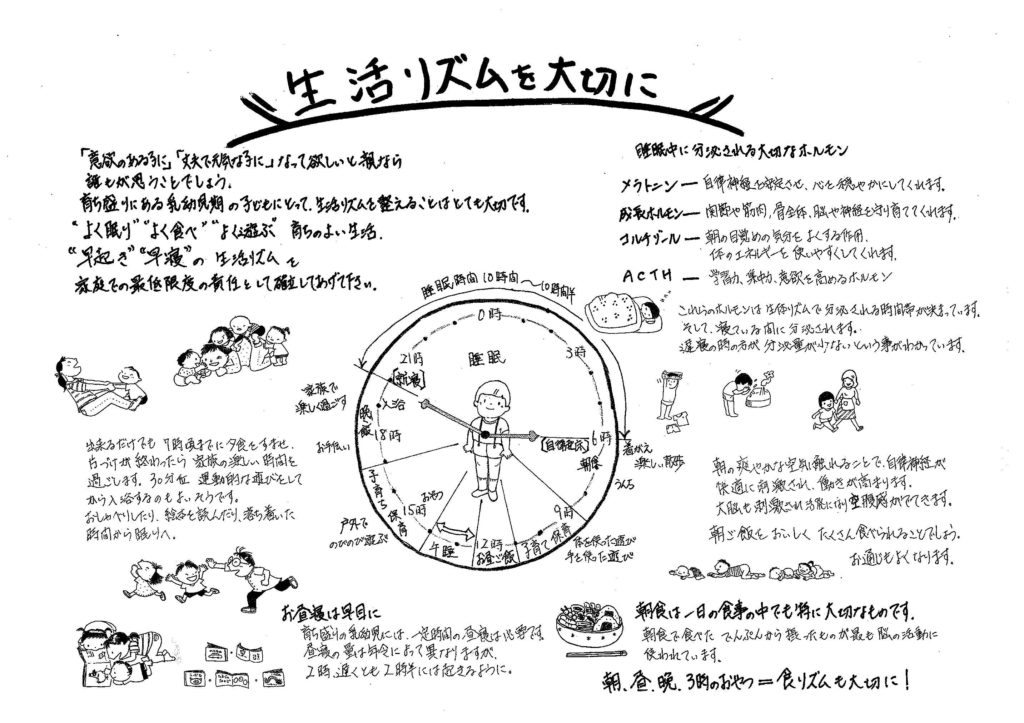 生活リズムを大切に
「意欲のある子に」「丈夫で元気な子に」なって欲しいと親なら
誰もが思うことでしょう。
育ち盛りにある乳幼児期の子どもにとって、生活リズムを整えることはとても大切です。
"よく眠り" "よく食べ" "よく遊ぶ" 育ちのよい生活。
"早起き" "早寝"の生活リズムを
家庭での最低限度の責任として確立してあげて下さい。
睡眠中に分泌される大切なホルモン
メラトニン ー 自律神経を安定させ、心を穏やかにしてくれます。
成長ホルモン ー 関節や筋肉、骨全体、脳や神経を守り育ててくれます。
コルチゾール ー 朝の目覚めの気分をよくする作用。
体のエネルギーを使いやすくしてくれます。
ACTH ー 学習力、集中力、意欲を高めるホルモン
これらのホルモンは生体リズムで分泌される時間帯が決まっています。
そして、寝ている間に分泌されます。
遅寝の時の方が分泌量が少ないという事がわかっています。
睡眠時間10時間〜10時間半
0時
3時
6時
9時
12時
15時
18時
21時
睡眠
[就寝]
入浴
晩飯
[自律起床]
朝食
子育ち保育
子育て保育
おやつ
午睡
お昼ご飯
家族で
楽しく過ごす
お手伝い
戸外で
のびのび遊ぶ
着がえ
楽しい散歩
うんち
体を使った遊び
手を使った遊び
出来るだけでも7時頃までに夕食をすませ、
片づけが終わったら家族の楽しい時間を
過ごします。30分位 運動的な遊びをして
から入浴するのもよいようです。
おしゃべりしたり、絵本を読んだり、落ち着いた
時間から眠りへ。
朝の爽やかな空気に触れることで、自律神経が
快適に刺激され、働きが高まります。
大脳も刺激され活発になり空腹感がでてきます。
朝ご飯をおいしくたくさん食べられることでしょう。
お通じもよくなります。
お昼寝は早目に
育ち盛りの乳幼児には、一定時間の昼寝は必要です。
昼寝の量は年令によって異なりますが、
2時、遅くても2時半には起きるように。
朝食は一日の食事の中でも特に大切なものです。
朝食で食べたでんぷんから摂ったものが最も脳の活動に
使われています。
朝、昼、晩、3時のおやつ＝食リズムも大切に！